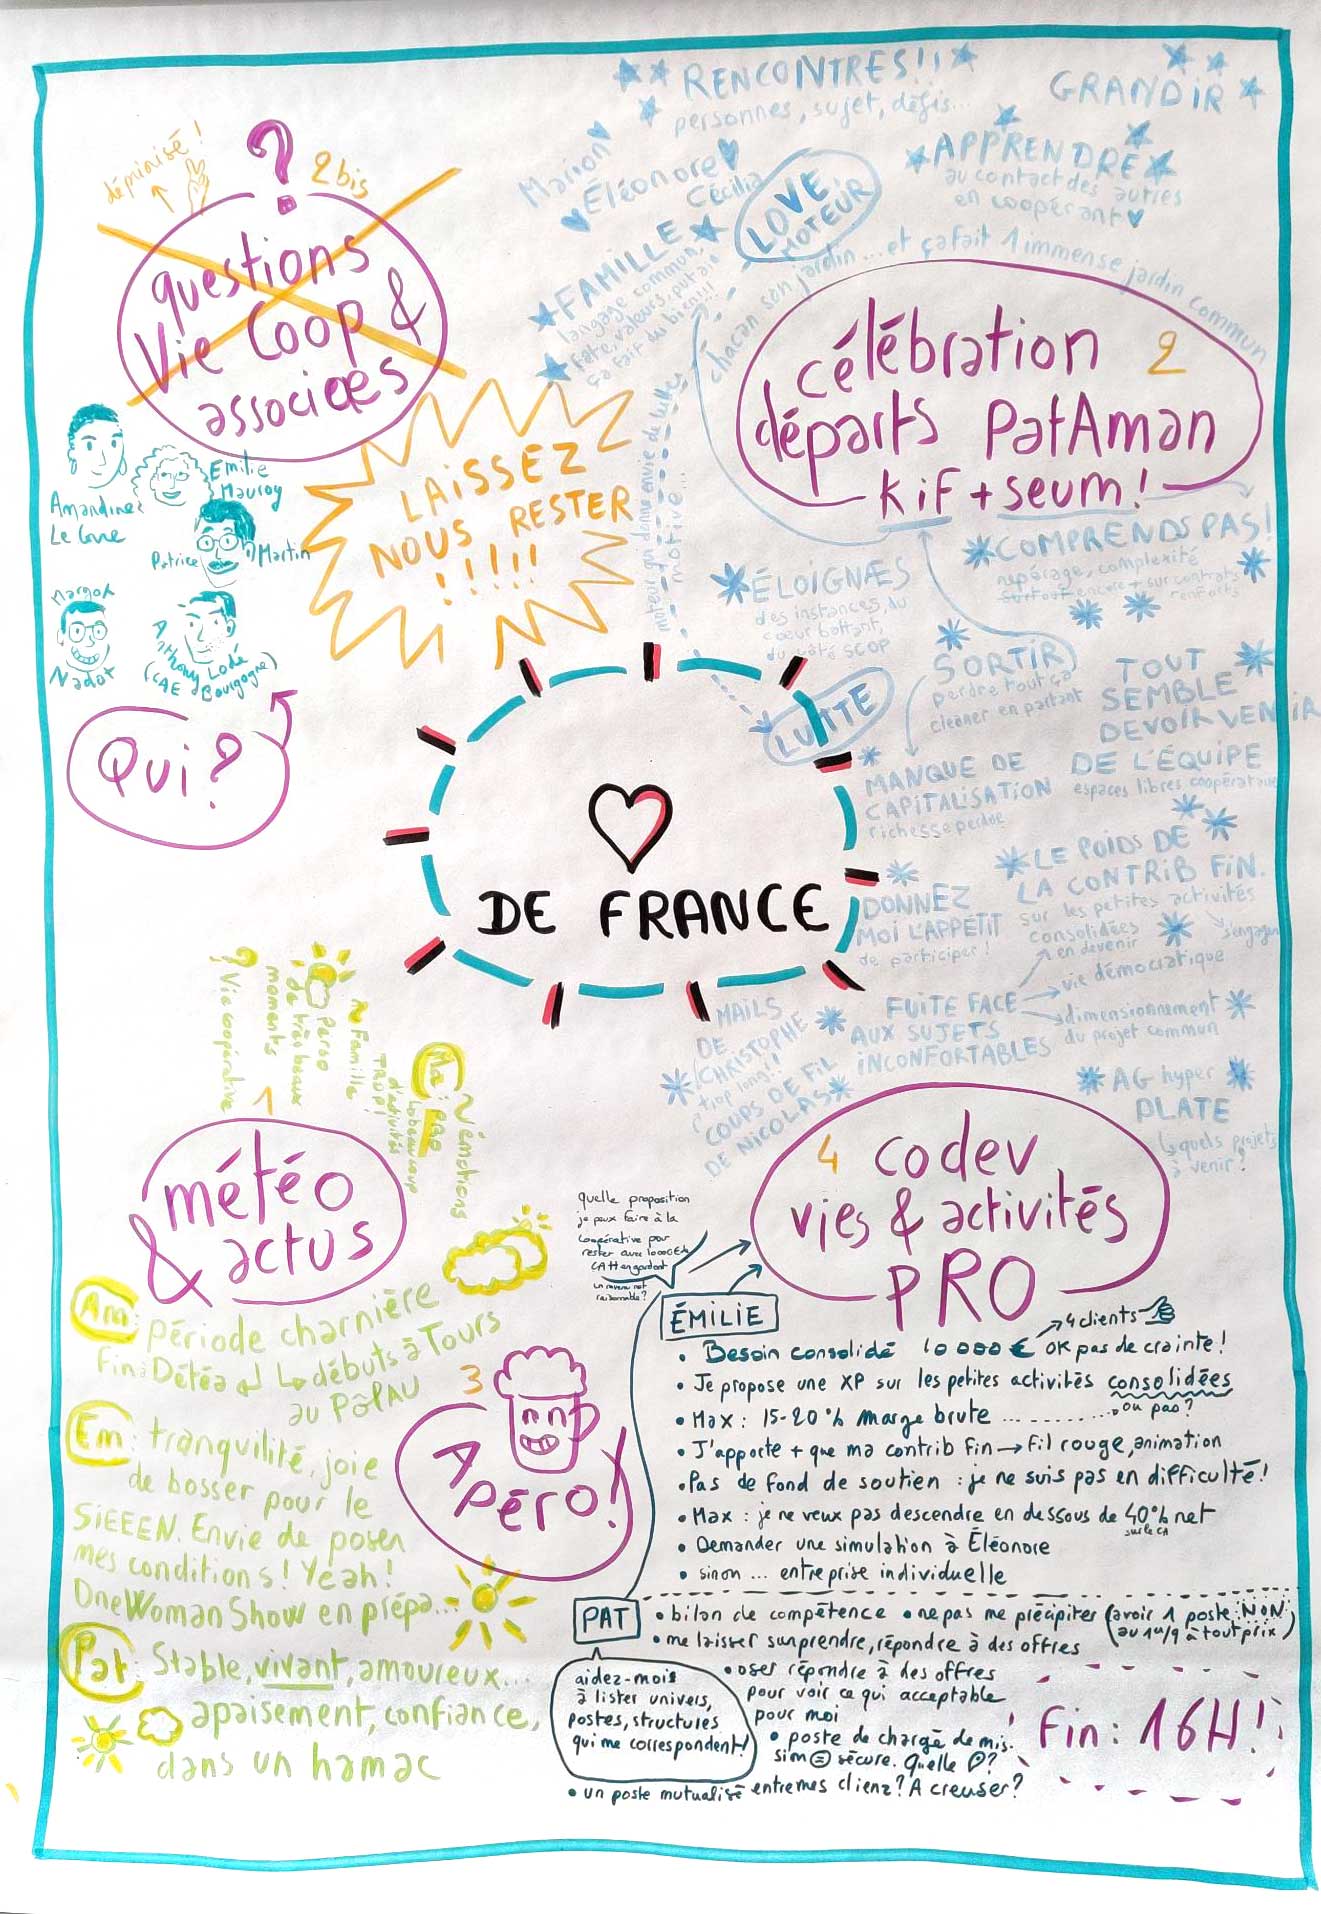 RENCONTRES!!
personnes, sujet, défis...
GRANDIR
APPRENDRE
au contact des autres
en coopérant
Marion
Éléonore
Cécilia
LOVE
MOTEUR
FAMILLE
langage commun,
fête, valeurs, putain
ça fait du bien!!!
chacun son jardin ... et ça fait 1 immense jardin commun
moteur qui donne envie de luttes
motivé ...
célébration 2
départs PatAman
kif + seum!
dépriorisé!
?
2 bis
questions
Vie Coop &
associæes
LAISSEZ
NOUS RESTER
!!!!!
Emilie
Mauroy
Amandine
Le
Patrice
Martin
Margot
Nadot
Anthony Lodé
(CAE Bourgogne)
Qui?
COMPRENDS PAS!
repérage, complexité
surtout encore + sur contrats
renforts
ÉLOIGNÆS
des instances, du
cœur battant,
du côté SCOP
SORTIR
perdre tout ça
cleaner en partant
LUTTE
TOUT
SEMBLE
DEVOIR VENIR
DE L'ÉQUIPE
espaces libres coopérateurs
MANQUE DE
CAPITALISATION
richesse perdue
DE FRANCE
LE POIDS DE
LA CONTRIB FIN.
sur les petites activités
consolidées
en devenir
s'engager
DONNEZ
MOI L'APPÉTIT
de participer!
FUITE FACE
AUX SUJETS
INCONFORTABLES
vie démocratique
dimensionnement
du projet commun
MAILS
DE
CHRISTOPHE
trop long!!
COUPS DE FIL
DE NICOLAS
AG hyper
PLATE
quels projets
à venir?
? Vie coopérative
moments
de très beaux
Perso
~ Famille
TROP!
d'activités
beaucoup
Ma: PRO
~ émotions
1
météo
& actus
Am: période charnière
Fin à Détéa
débuts à Tours
au PôlAU
Em: tranquilité, joie
de bosser pour le
SIEEEN. Envie de poser
mes conditions! Yeah!
OneWomanShow en prépa...
Pat: Stable, vivant, amoureux...
apaisement, confiance,
dans un hamac
3
APéRO!
4 codev
vies & activités
PRO
quelle proposition
je peux faire à la
coopérative pour
rester avec 10000€ de
CA H en gardant
un revenu net
raisonnable?
ÉMILIE
4 clients
• Besoin consolidé 10 000 € OK pas de crainte!
• Je propose une XP sur les petites activités consolidées
• Max: 15-20% marge brute ............ ou pas?
• J'apporte + que ma contrib fin → fil rouge, animation
• Pas de fond de soutien: je ne suis pas en difficulté!
• Max: je ne veux pas descendre en dessous de 40% net
sur le CA
• Demander une simulation à Éléonore
• sinon ... entreprise individuelle
PAT
• bilan de compétence • ne pas me précipiter (avoir 1 poste NON
au 1er/9 à tout prix)
• me laisser surprendre, répondre à des offres
aidez-mois
à lister univers,
postes, structures
qui me correspondent!
• oser répondre à des offres
pour voir ce qui acceptable
pour moi
• poste de chargé de mis.
sion = sécure. Quelle ?
• un poste mutualisé entre mes clienz? A creuser?
Fin: 16H!